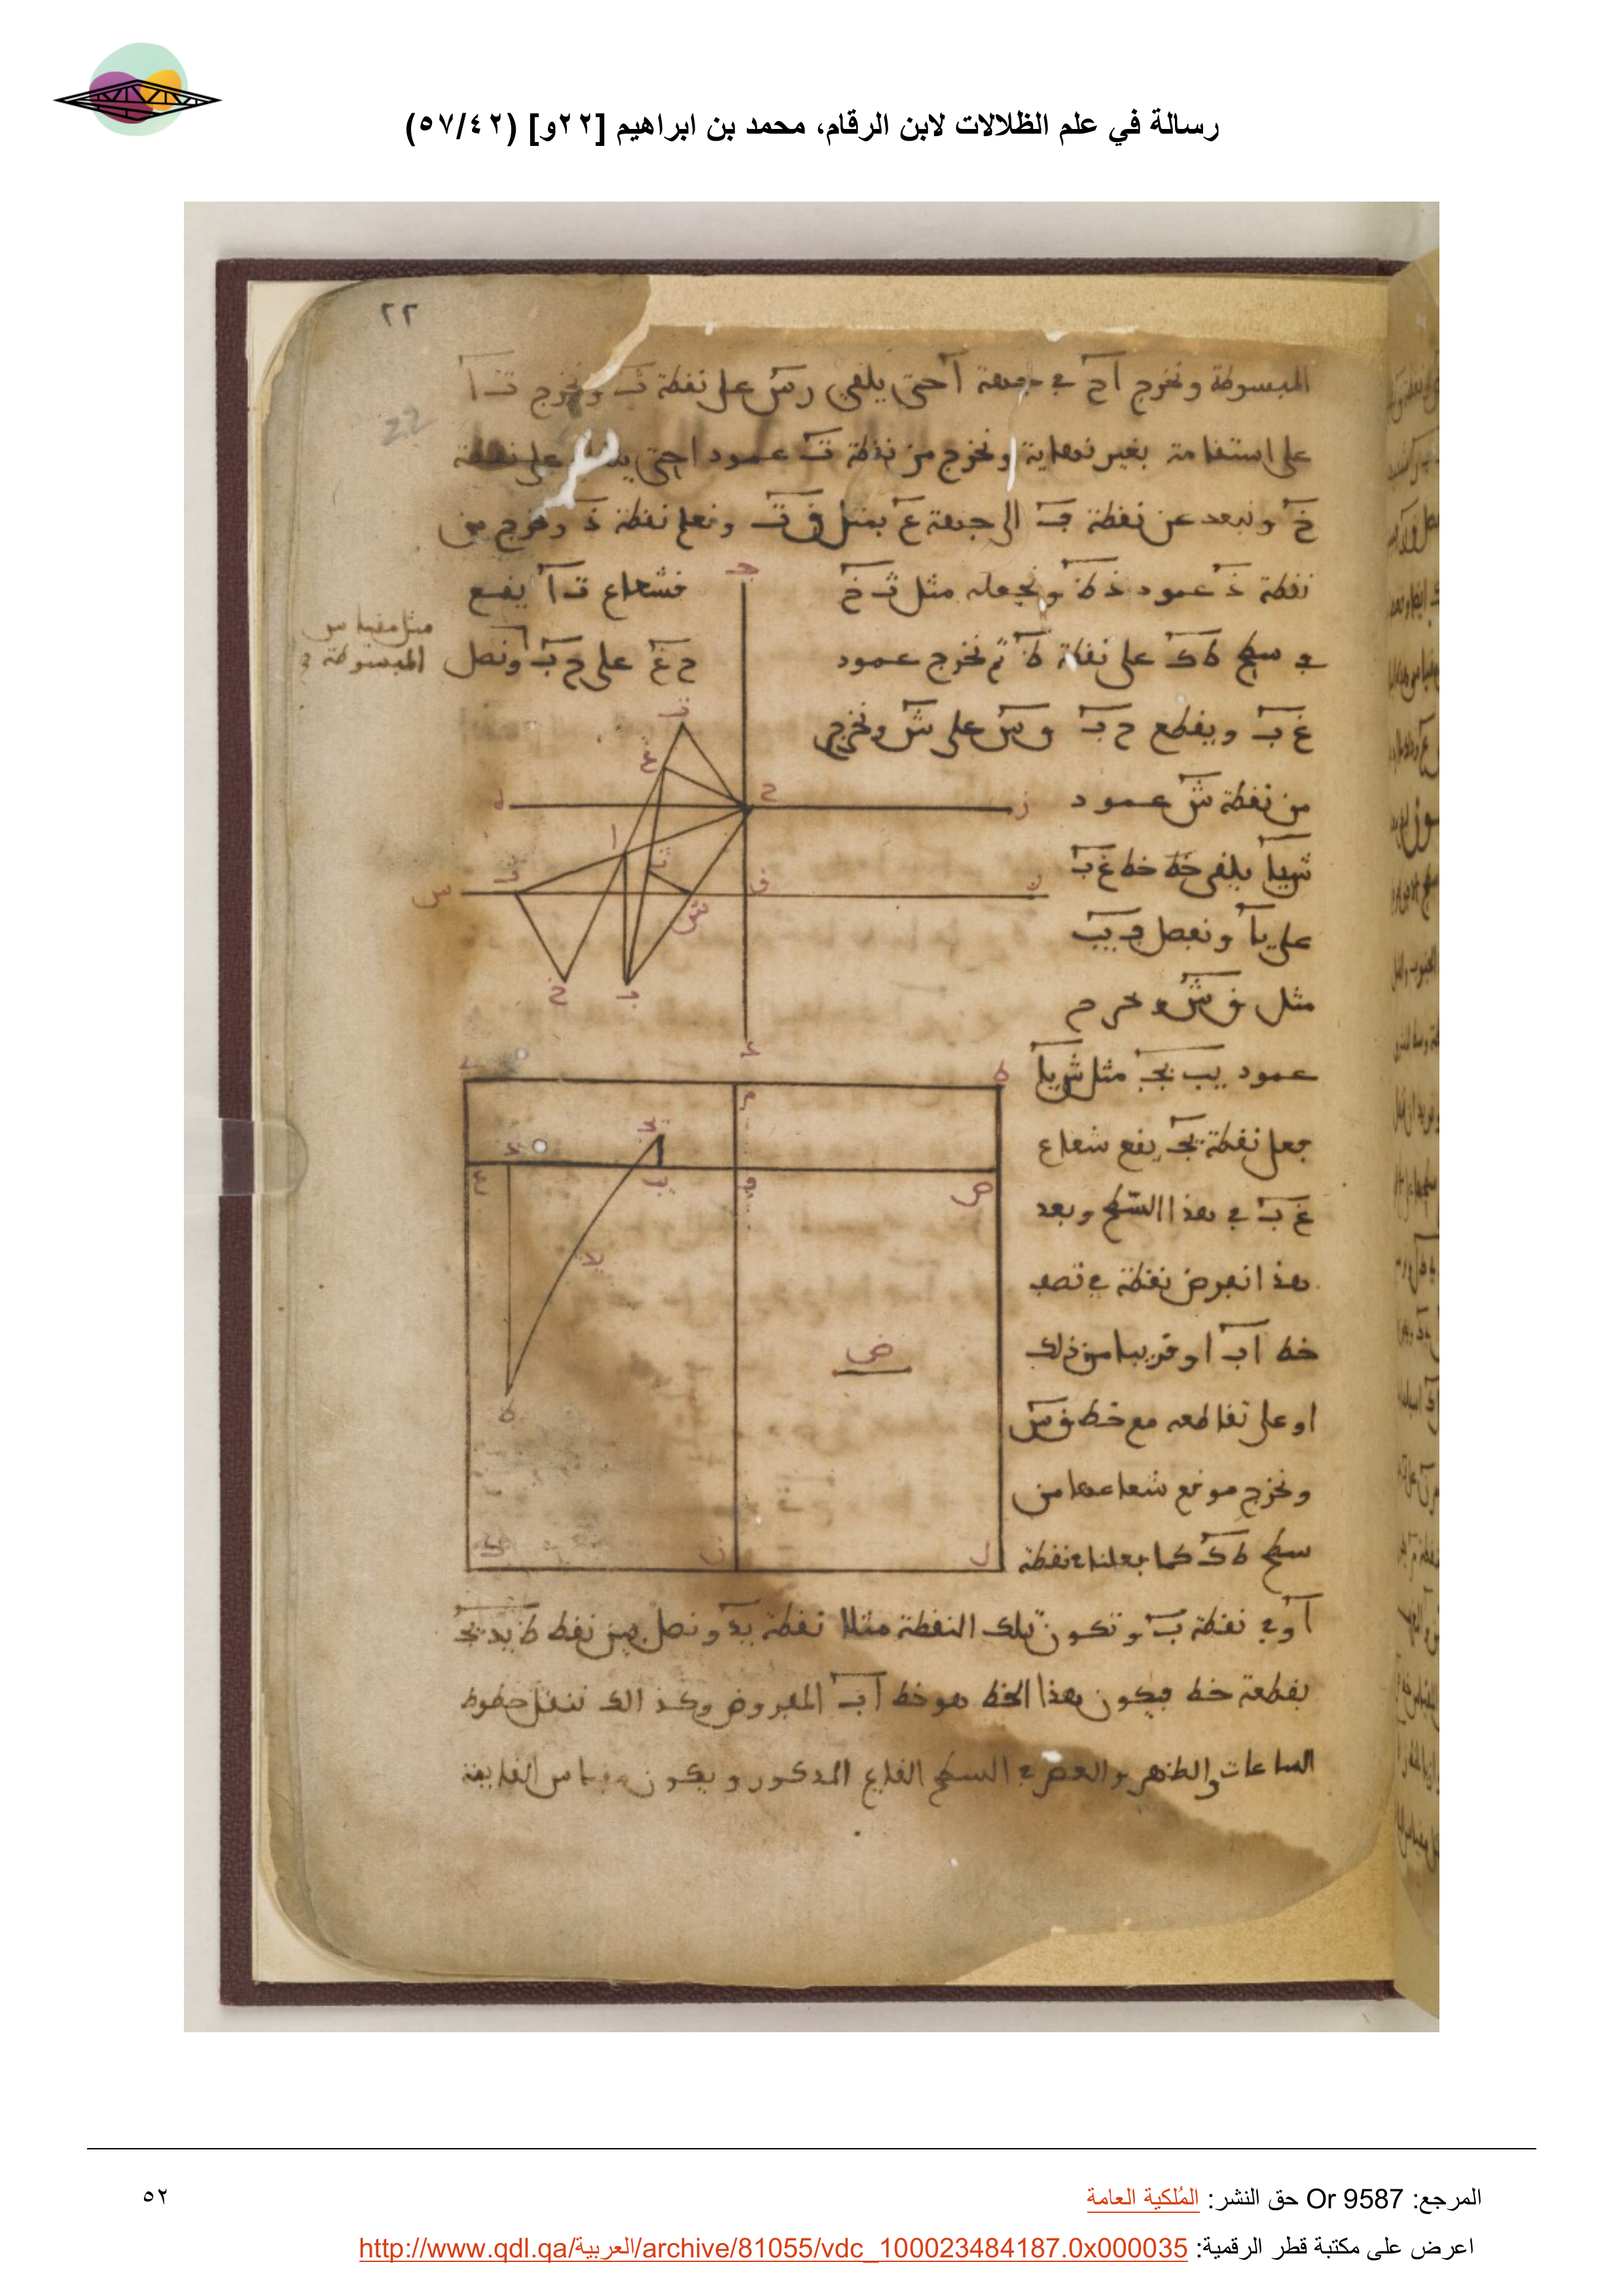 رسالة في علم الظلالات لابن الرقام، محمد بن ابراهيم [٢٢و] (٥٧/٤٢)
٢٢
22
المبسوطة ونخرج آح في جهة آ حتى يلقى رس على نقطة ت ونخرج ث آ
على استقامة بغير نهاية ونخرج من نقطة ت عمودا حتى على نقطة
خ ونبعد عن نقطة ف الى جهة ع بمثل ق ت ونعلم نقطة ذ ونخرج من
نقطة ذ عمود ذ ظ ونجعله مثل ت خ
فشعاع ث آ يقع
في سطح ط ك على نقطة ظ ثم نخرج عمود
ح غ على ح ب ونصل
مثل مقياس
المبسوطة
غ ب ويقطع ح ب ق س على ش ونخرج
من نقطة ش عمود
ش يا يلقى خط غ ب
على يا ونفصل يب
مثل ق ش ونخرج
عمود يب يج مثل ش يا
فعلى نقطة يج يقع شعاع
غ ب في هذا السطح وبعد
هذا نفرض نقطة في نصف
خط ا ب او قريبا من ذلك
او على تقاطعه مع خط ق س
ونخرج موقع شعاعها من
سطح ط ك كما فعلنا في نقطة
آ وفي نقطة ب وتكون تلك النقطة مثلا نقطة يد ونصل بين نقط ظ يد يج
بقطعة خط فيكون هذا الخط هو خط ا ب المفروض وكذالك ننقل خطوط
الساعات والظهر والعصر في السطح القايم المذكور ويكون مقياس القايمة
ث
غ
ح
ز
ا
س
ق
ش
خ
ب
ط
م
يج
ع
يب
ص
يد
ض
ظ
ك
ن
ل
المرجع: Or 9587 حق النشر: المُلكية العامة
٥٢
اعرض على مكتبة قطر الرقمية: http://www.qdl.qa/العربية/archive/81055/vdc_100023484187.0x000035